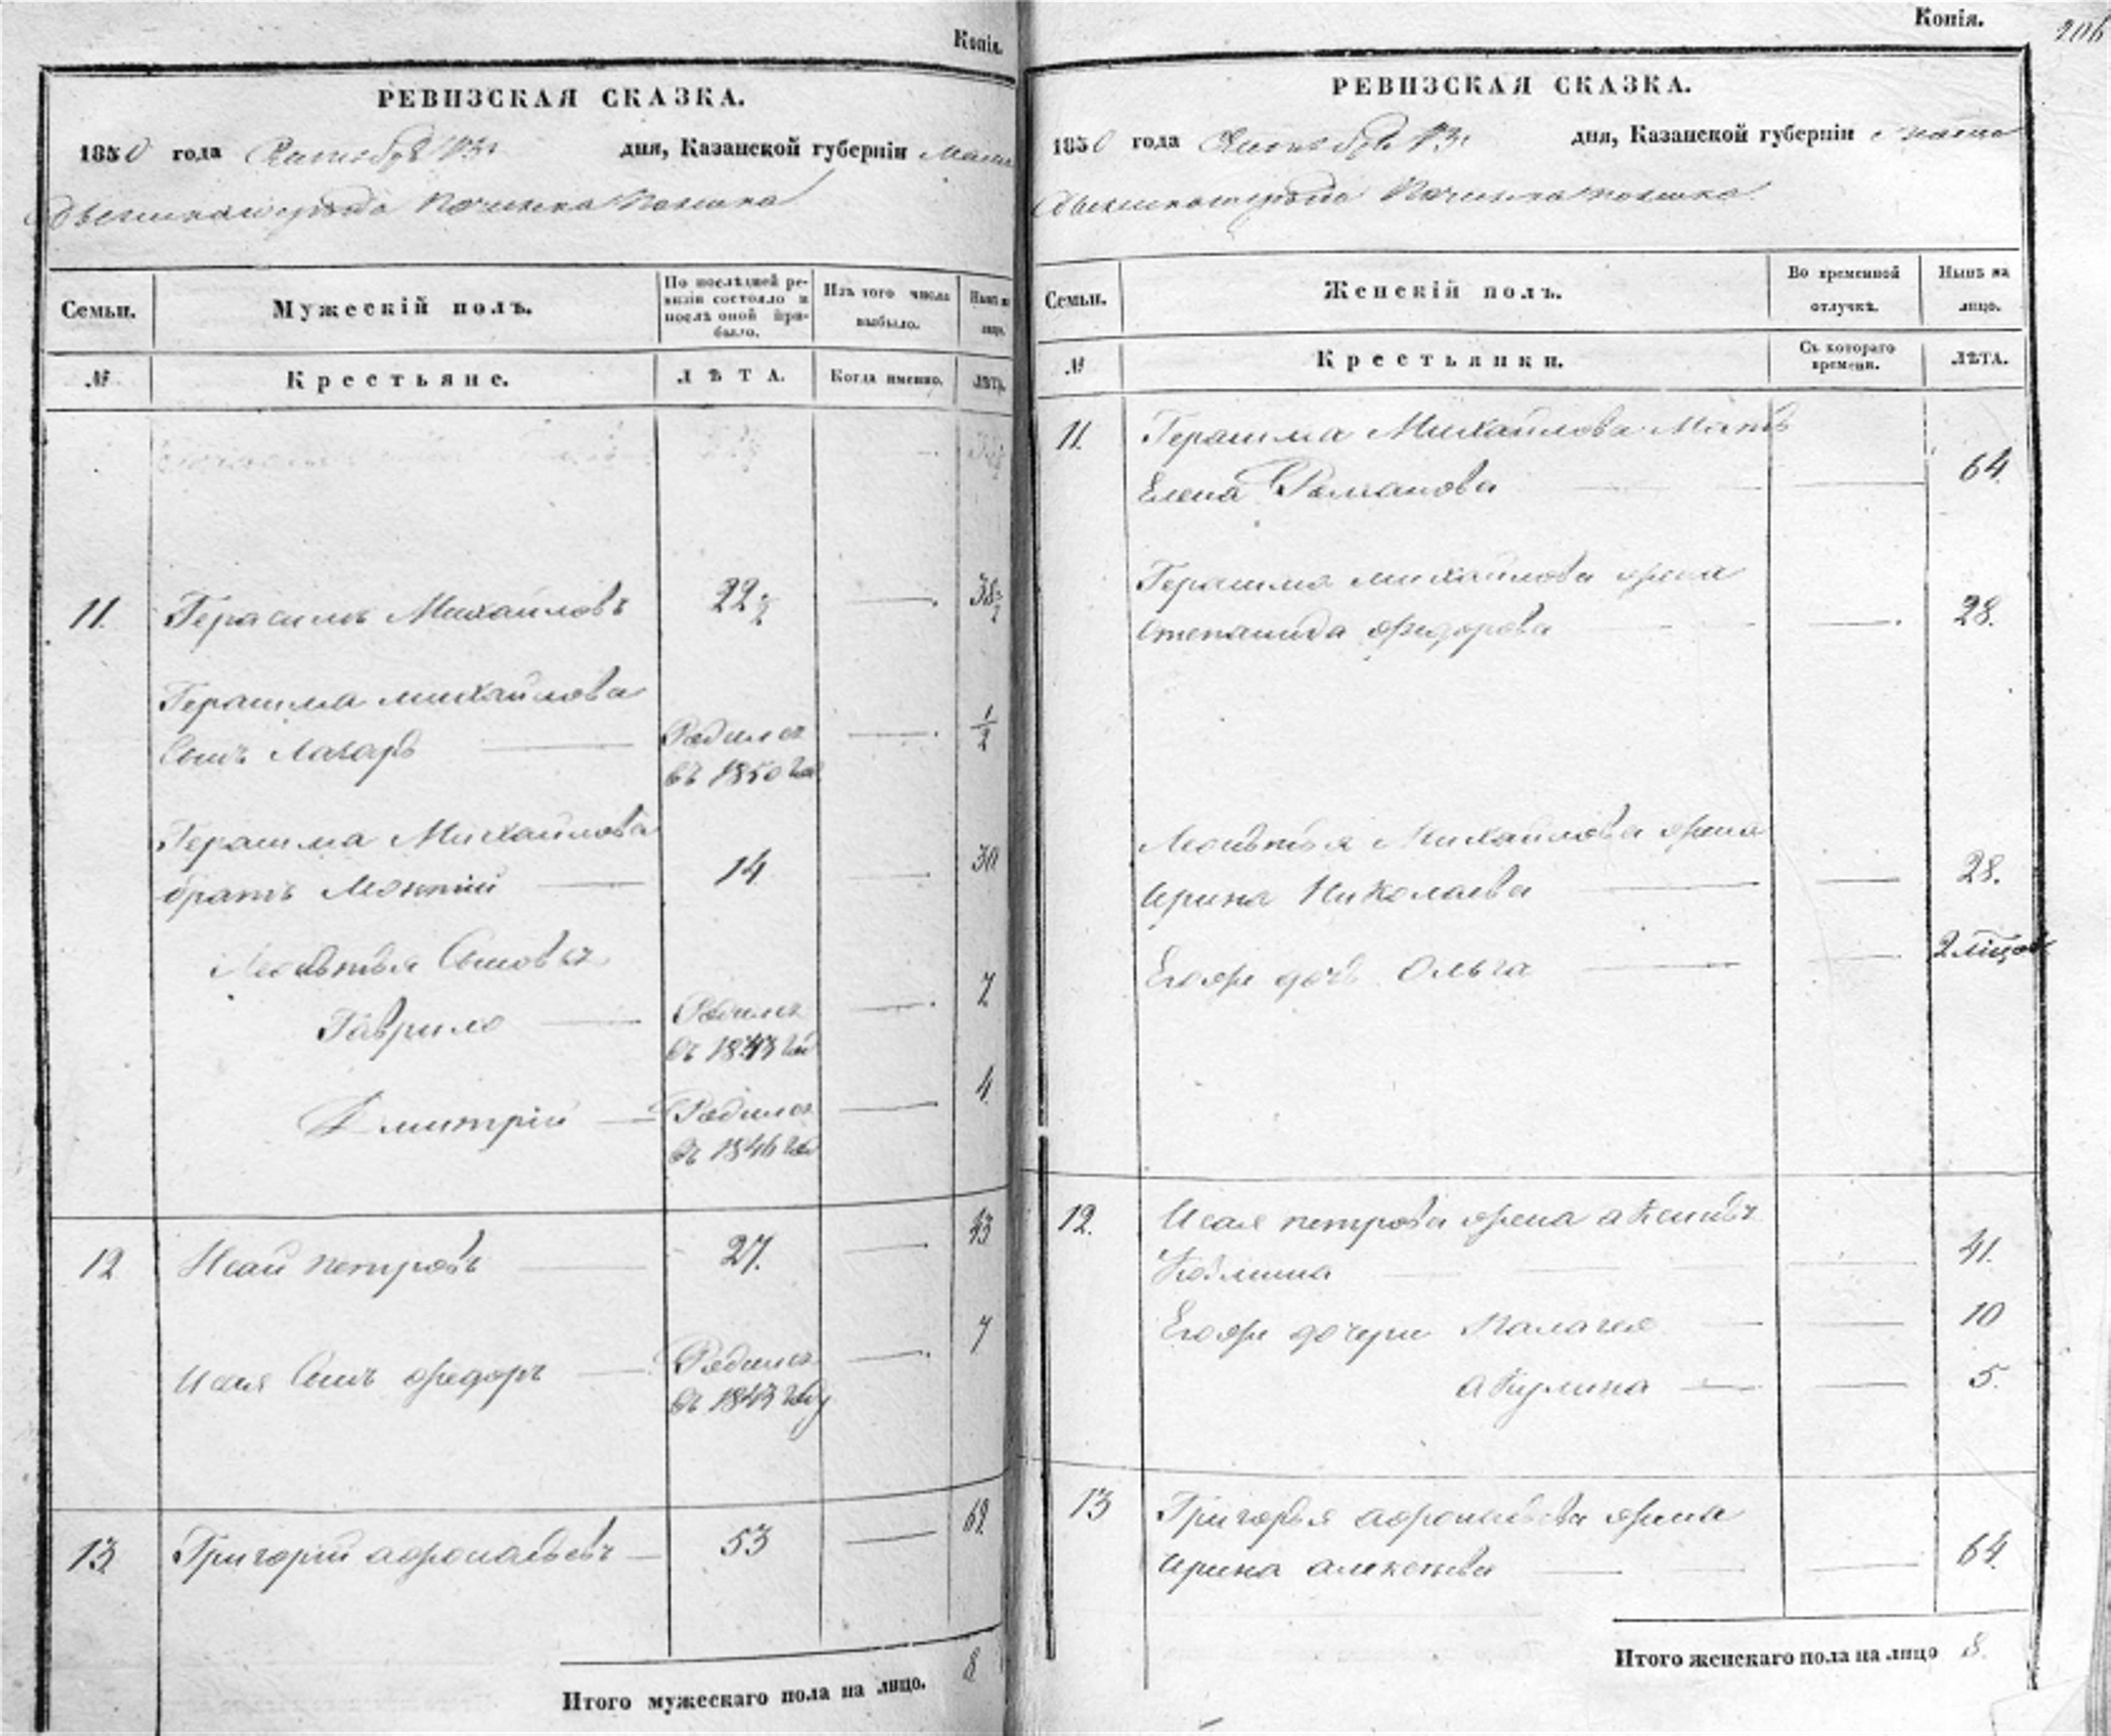 Копія.
РЕВИЗСКАЯ СКАЗКА.
1850 года Октября 13 дня, Казанской губерніи Мама
дышскаго уезда Починка
Семьи.
Мужескій полъ.
По послѣдней ре-
визіи состояло и
послѣ оной при-
было.
Изъ того числа
выбыло.
Нынѣ на
лицо.
№
Крестьяне.
ЛѢТА.
Когда именно.
ЛѢТА.
11. Герасимъ Михайловъ 22½ 38½
Герасима Михайлова
Сынъ Лазарь Родился ½
въ 1850 году
Герасима Михайлова
братъ Леонтій 14 30
Леонтья Сыновья
Гаврило Родился 7
въ 1843 году
Дмитрій Родился 4
въ 1846 году
12 Исай Петровъ 27. 43
Исая Сынъ Федоръ Родился 7
въ 1843 году
13 Григорій Афонасьевъ 53 69
Итого мужескаго пола на лицо. 8
Копія. 206
РЕВИЗСКАЯ СКАЗКА.
1850 года Октября 13 дня, Казанской губерніи Мама
дышскаго уезда Починка
Семьи.
Женскій полъ.
Во временной
отлучкѣ.
Нынѣ на
лицо.
№
Крестьянки.
Съ котораго
времени.
ЛѢТА.
11. Герасима Михайлова Мать
Елена Романова 64
Герасима Михайлова жена
Степанида Федорова 28.
Леонтья Михайлова жена
Ирина Николаева 28.
Егоже дочь Ольга
12. Исая Петрова жена
41.
Егоже дочери Палагея 10
Акулина 5.
13 Григорья Афонасьева жена
Ирина Алексеева 64.
Итого женскаго пола на лицо 8.